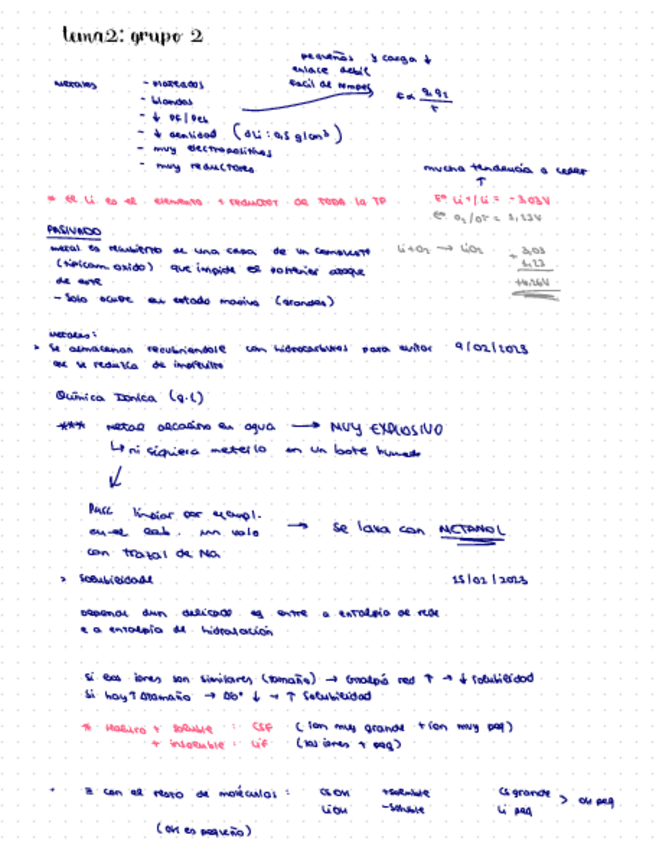 tema2: grupo 2
pequeñas y carga ↓
enlace debil
facil de romper
F α q1 q2 / r
metales - plateados
- blandos
- ↓ PF/PEb
- ↓ densidad (dLi: 0,5 g/cm³)
- muy electropositivos
- muy reductores
mucha tendencia a ceder
↑
* el Li es el elemento + reductor de toda la TP
Eº Li+/Li = -3.03V
Eº O2/O²⁻ = 1,23V
PASIVADO
metal es recubierto de una capa de un compuesto
(tipicam oxido) que impide el posterior ataque
de este
- Solo ocurre en estado masivo (grandes)
Li + O2 → LiO2
+ 3,03
1,23
+4.26V
metales:
> Se almacenan recubriendole con hidrocarburos para evitar 9/02/2023
que se reduzca de
Química Ionica (q.l)
*** metal alcalino en agua → MUY EXPLOSIVO
↳ ni siquiera meterlo en un bote humedo
↙
Para limpiar por ejempl.
en el lab. un vaso → se lava con METANOL
con trazal de Na
> Solubilidade 15/02/2023
depende dun delicado eq entre a entalpia de rede
e a entalpia de hidratación
Si los iones son similares (tamaño) → Entalpia red ↑ → ↓ solubilidad
Si hay ↑ Δtamaño → ↓ → ↑ solubilidad
* Haluro + soluble : CsF (ion muy grande + ion muy peq)
+ insoluble : LiF (los iones + peq)
= con el resto de moléculas : CsOH +soluble Cs grande
LiOH -soluble Li peq > OH peq
(OH es pequeño)